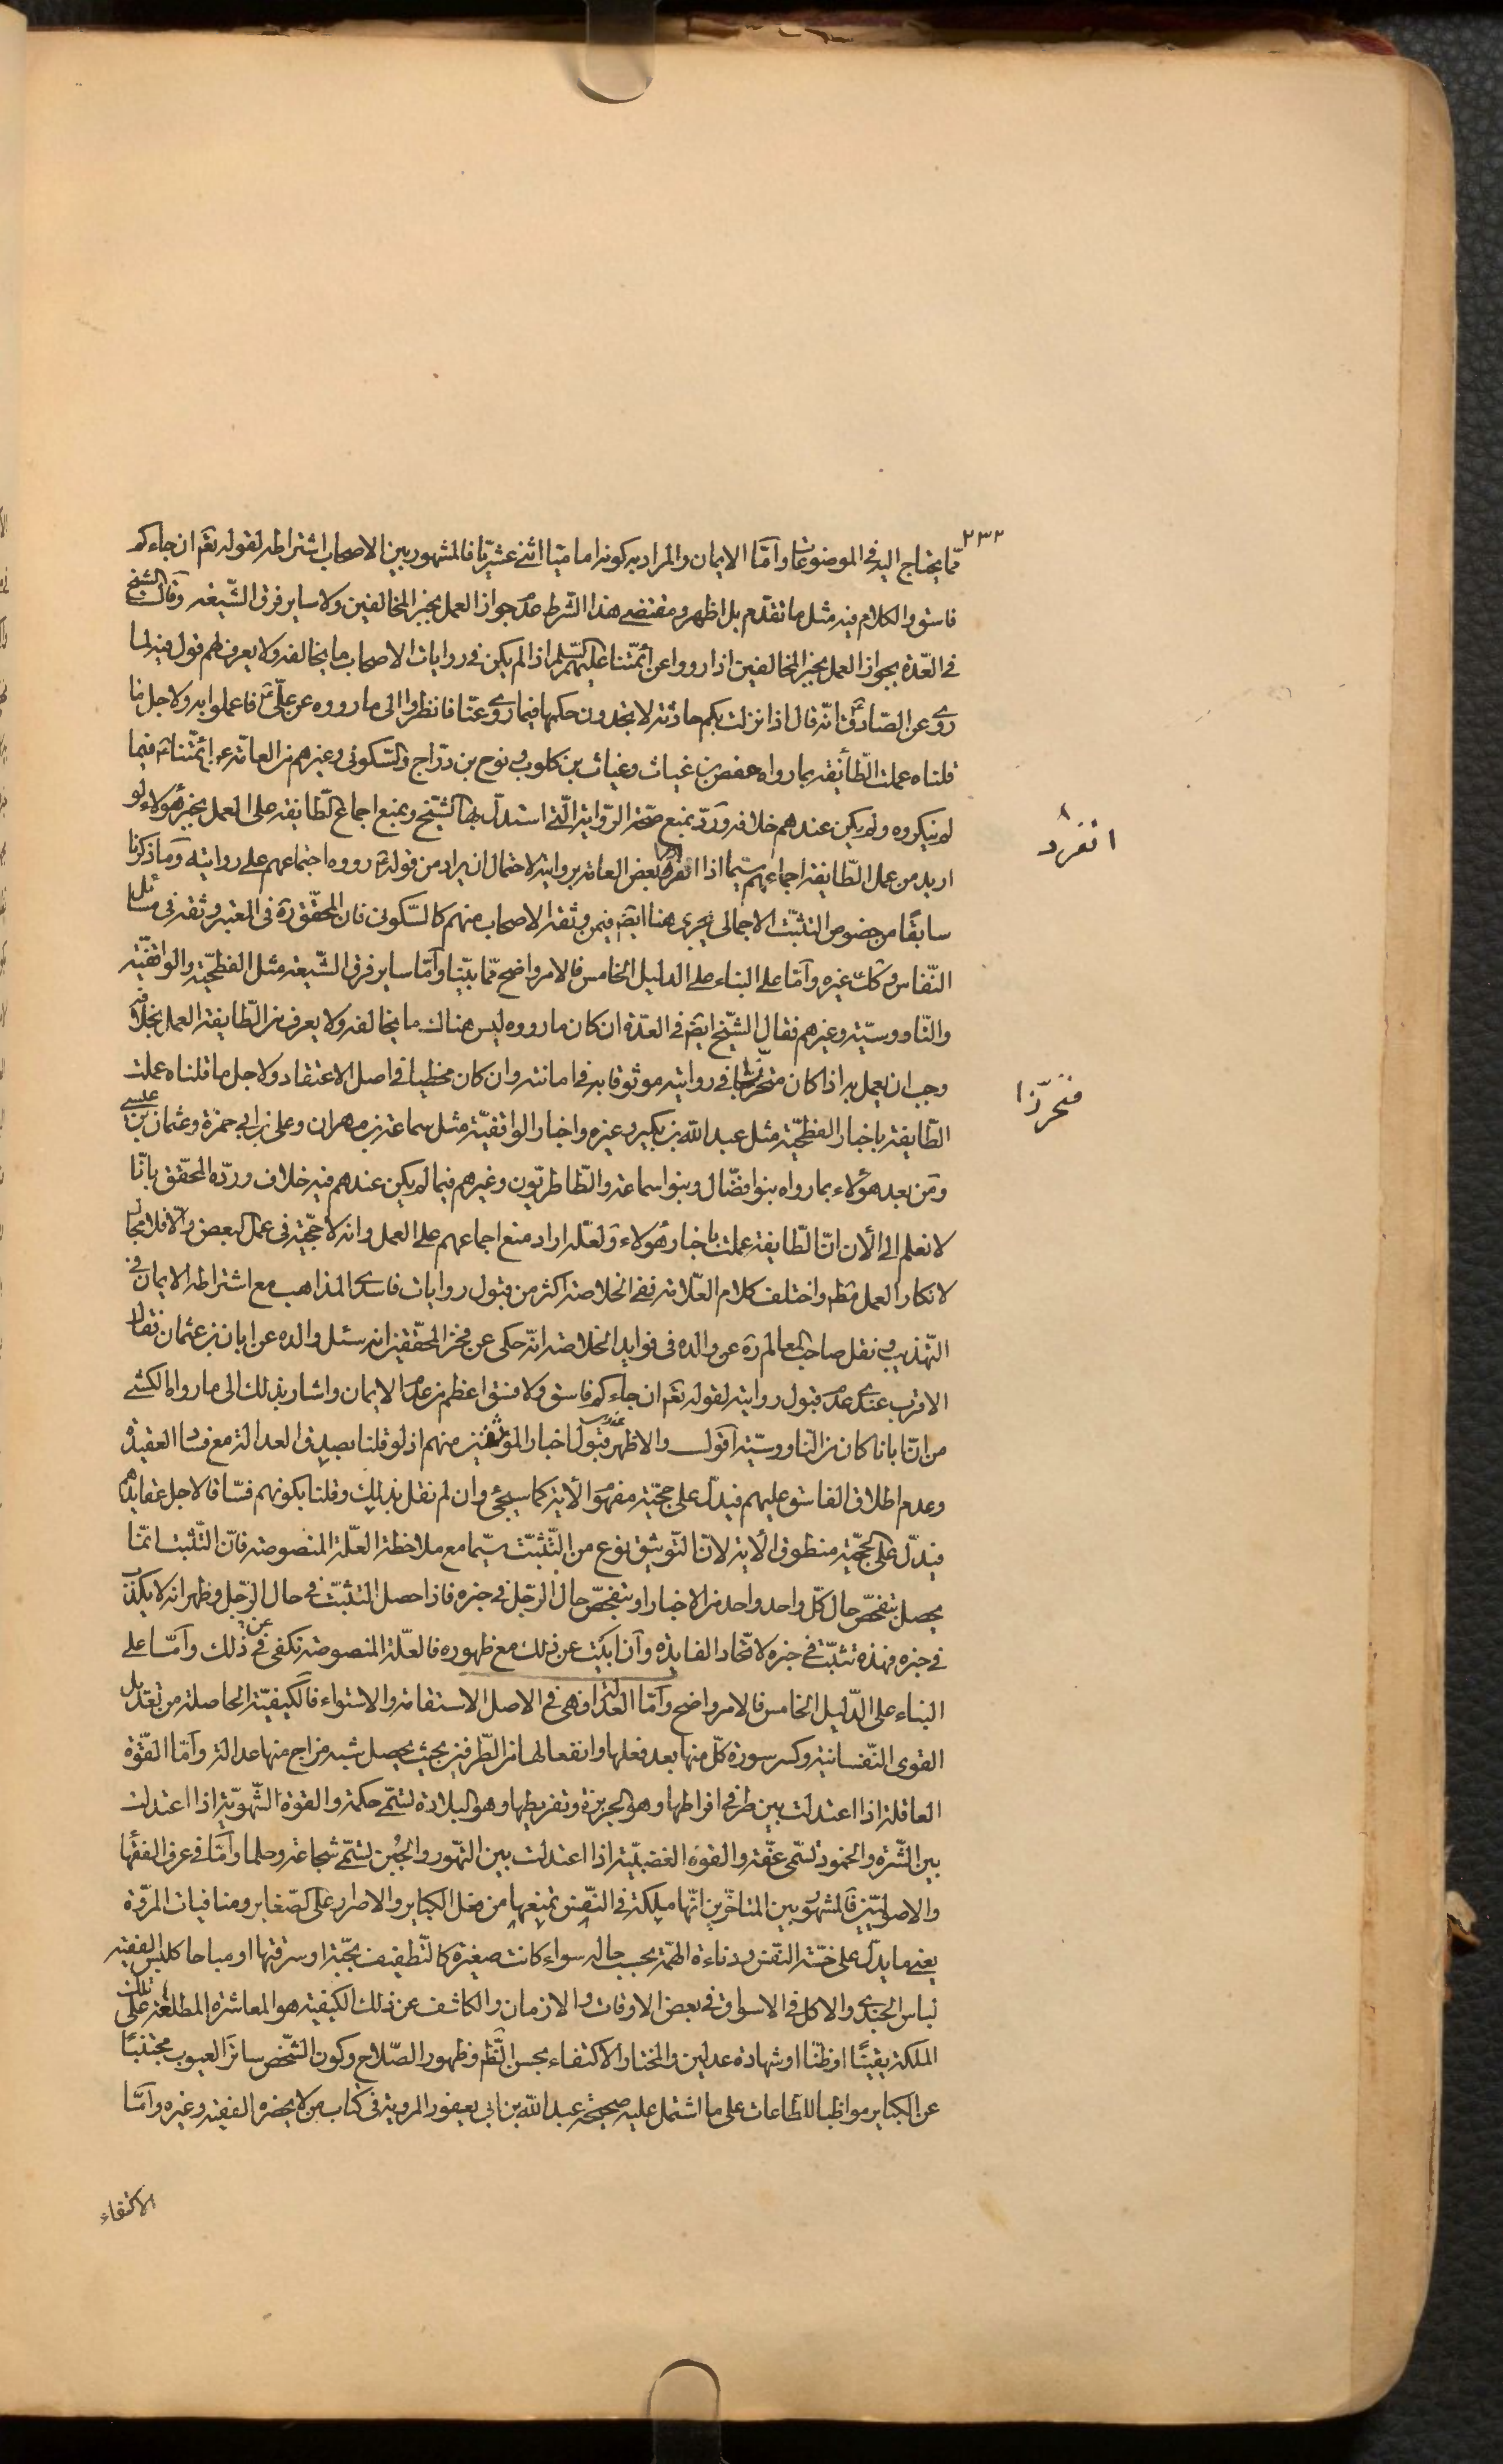 ٢٣٢
ممّا يحتاج اليه في الموضوعات وامّا الايمان والمراد به كونه اماميّا اثنى عشريّا فالمشهور بين الاصحاب اشتراطه لقوله تعٓ ان جاءكم
فاسق والكلام فيه مثل ما تقدّم بل اظهر ومقتضى هذا الشرط عدم جواز العمل بخبر المخالفين ولا ساير فرق الشّيعة وقال الشيخ
في العدّة بجواز العمل بخبر المخالفين اذا رووا عن أئمّتنا عليهم السّلم اذا لم يكن في روايات الاصحاب ما يخالفه ولا يعرف لهم قول فيه لما
روى عن الصّادقؑ انّه قال اذا نزلت بكم حادثة لا تجدون حكمها فيما روى عنّا فانظروا الى ما رووه عن علّيؑ فاعملوا به ولاجل ما
قلناه عملت الطّائفة بما رواه حفص بن غياث وغياث بن كلوب ونوح بن درّاج والسّكونى وغيرهم من العامّة عن ائمّتناؑ فيما
لم ينكروه ولم يكن عندهم خلافه وردّ بمنع صحّة الرّواية الّتى استدلّ بها الشّيخ وبمنع اجماع الطّايفة على العمل بخبر هؤلاء لو
اريد من عمل الطّايفة اجماعهم سيّما اذا انفرد بعض العامّة بروايته لاحتمال ان يراد من قولهؑ رووه اجتماعهم على روايته وما ذكرنا
انفرد
سابقًا من خصوص التثبّت الاجمالى يجرى هنا ايضٓ فيمن وثقه الاصحاب منهم كالسّكونى فان المحقّق ره في المعتبر وثقه في مسائل
النّفاس وكك غيره وامّا على البناء على الدليل الخامس فالامر واضح ممّا بيّنا وامّا ساير فرق الشّيعة مثل الفطحيّة والواقفيّة
والنّاووسيّة وغيرهم فقال الشّيخ ايضٓ في العدّة ان كان ما رووه ليس هناك ما يخالفه ولا يعرف من الطّايفة العمل بخلافه
وجب ان يعمل به اذا كان متحرّجا في روايته موثوقا به في امانته وان كان مخطيا في اصل الاعتقاد ولاجل ما قلناه عملت
متحرّزا
الطّايفة باخبار الفطحيّة مثل عبد الله بن بكير وغيره واخبار الواقفيّة مثل سماعة بن مهران وعلى بن ابي حمزة وعثمان بن عيسى
ومن بعد هؤلاء بما رواه بنوا فضّال وبنوا سماعة والطّاطريّون وغيرهم فيما لم يكن عندهم فيه خلاف وردّه المحقّق بانّا
لا نعلم الى الأن انّ الطّايفة عملت باخبار هؤلاء ولعلّه اراد منع اجماعهم على العمل وانه لا حجّيّة في عمل البعض والّا فلا مجال
لانكار العمل مطٓ واختلف كلام العلّامة ففي الخلاصة اكثر من قبول روايات فاسدى المذاهب مع اشتراطه الايمان في
التّهذيب ونقل صاحب المعالم ره عن والده في فوايد الخلاصة انّه حكى عن فخر المحقّقين انه سئل والده عن ابان بن عثمان فقال
الاقرب عندى عدم قبول روايته لقوله تعٓ ان جاءكم فاسق ولا فسق اعظم من عدم الايمان واشار بذلك الى ما رواه الكشى
من انّ ابانا كان من النّاووسيّة اقول والاظهر عندى قبول اخبار الموثقين منهم اذ لو قلنا بصدق العدالة مع فساد العقيدة
وعدم اطلاق الفاسق عليهم فيدلّ على حجّيّته مفهوم الأية كما سيجئ وان لم نقل بذلك وقلنا بكونهم فسّاقا لاجل عقايدهم
فيدلّ على حجّيّته منطوق الأية لانّ التّوثيق نوع من التّثبّت سيّما مع ملاحظة العلّة المنصوصة فانّ التّثبت انّما
يحصل بتفحّص حال كلّ واحد واحد من الاخبار او بتفحّص حال الرّجل في خبره فاذا حصل التثبّت في حال الرّجل وظهر انه لا يكذب
في خبره فهذه تثبّت في خبره لاتّحاد الفايدة وان ابيت عن ذلك مع ظهوره فالعلّة المنصوصة تكفى عن ذلك وامّا على
البناء على الدّليل الخامس فالامر واضح وامّا العدالة فهى في الاصل الاستقامة والاستواء فالكيفيّة الحاصلة من تعديل
القوى النّفسانية وكسر سورة كلّ منها بعد فعلها وانفعالها من الطّرفين بحيث يحصل شبه مزاج منها عدالة وامّا القوّة
العاقلة اذا اعتدلت بين طرفى افراطها وهو الجربزة وتفريطها وهو البلادة تسمّى حكمة والقوة الشّهويّة اذا اعتدلت
بين الشّره والخمود تسمّى عفّة والقوة الغضبيّة اذا اعتدلت بين التهّور والجُبن تسمّى شجاعة وحلما وامّا في عرف الفقهاء
والاصوليّين فالمشهور بين المتاخّرين انّها ملكة في النّفس تمنعها من فعل الكباير والاصرار على الصّغاير ومنافيات المروّة
يعنى ما يدلّ على خسّة النّفس ودناءة الهمّة بحسب حاله سواء كانت صغيرة كالتّطفيف بحبّة او سرقتها او مباحا كلبس الفقيه
لباس الجندى والاكل في الاسواق في بعض الاوقات والازمان والكاشف عن ذلك الكيفيّة هو المعاشرة المطلعة على تلك
الملكة يقينًا او ظنّا او شهادة عدلين والمختار الاكتفاء بحسن الظّهر وظهور الصّلاح وكون الشّخص ساترا لعيوب مجتنبًا
عن الكباير مواظبا للطّاعات على ما اشتمل عليه صحيحة عبد الله بن ابى يعفور المروية في كتاب من لا يحضره الفقيه وغيره وامّا
الاكتفاء